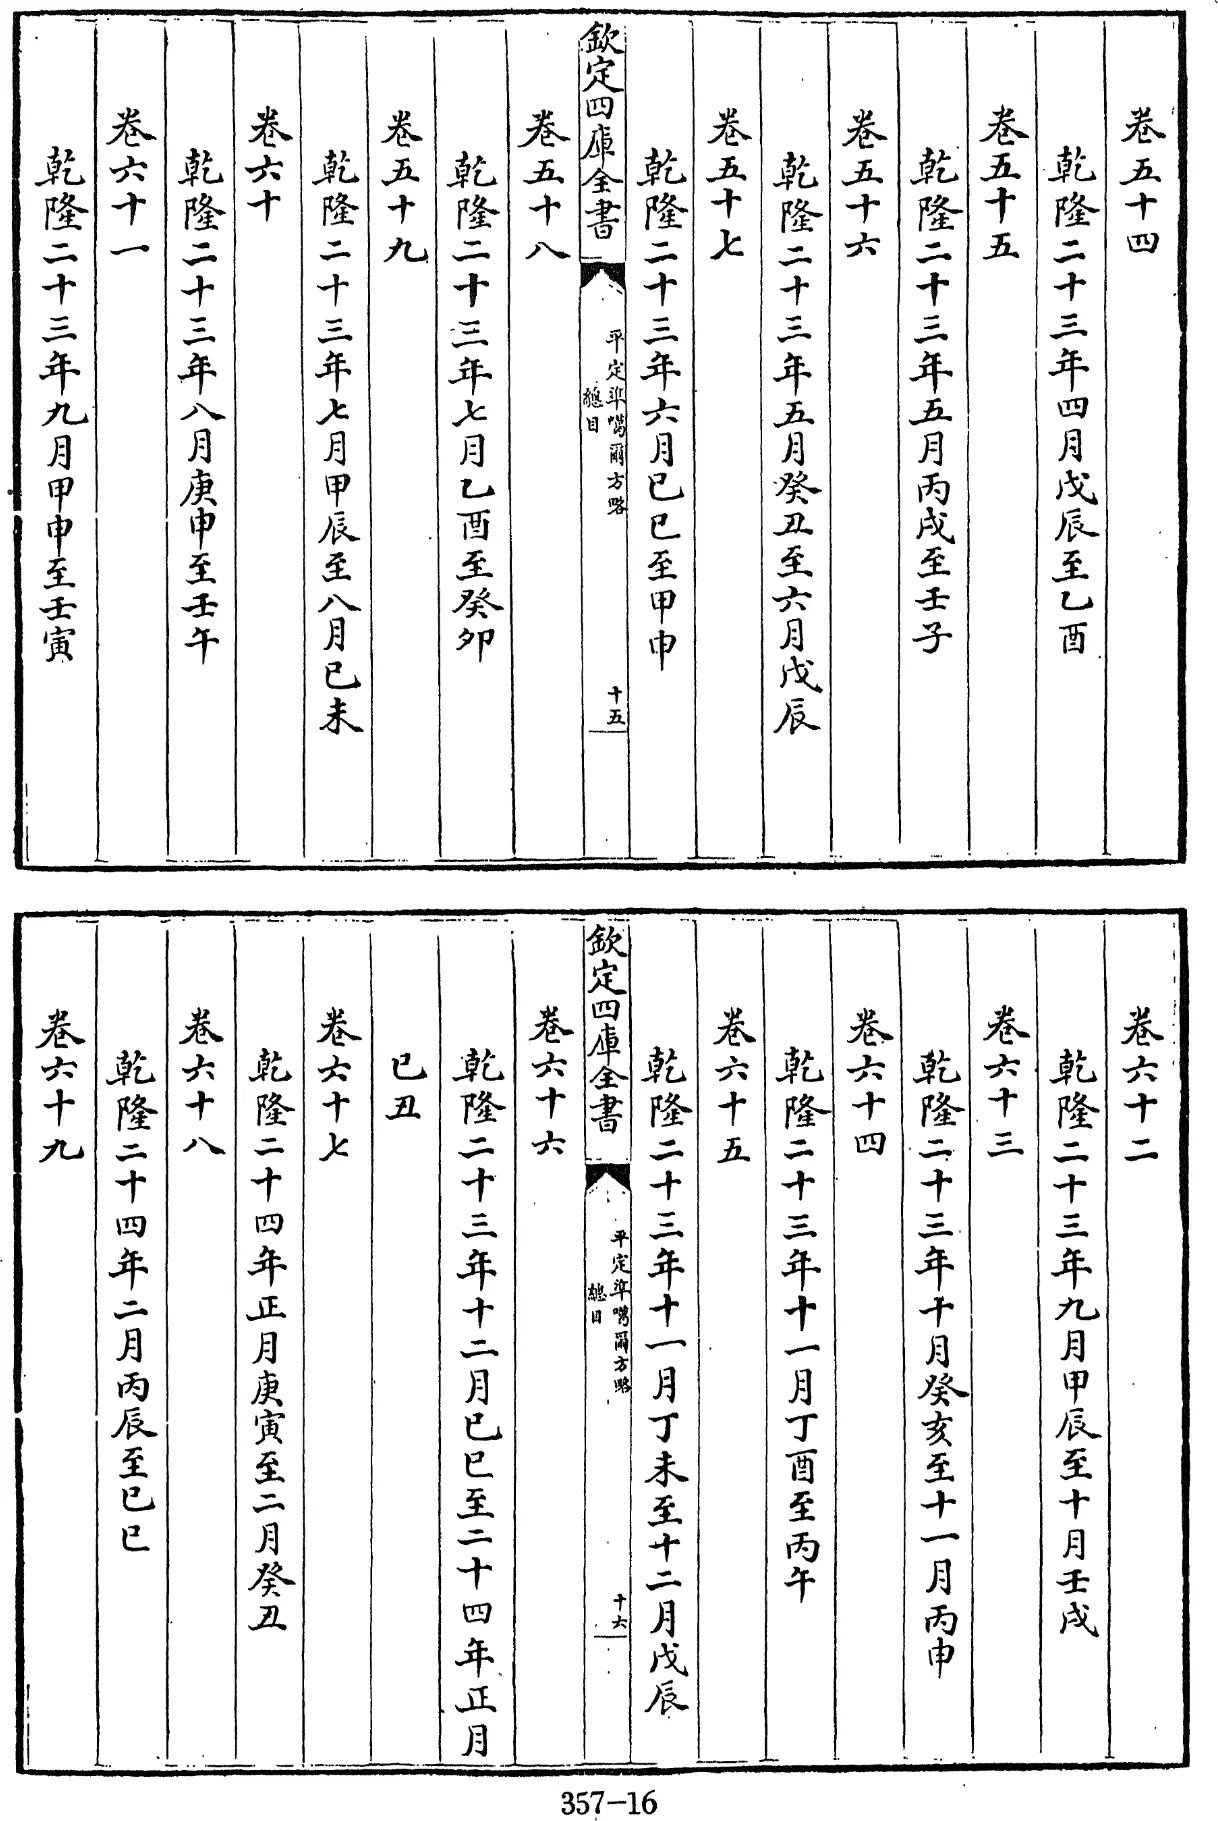 卷五十四
乾隆二十三年四月戊辰至乙酉
卷五十五
乾隆二十三年五月丙戌至壬子
卷五十六
乾隆二十三年五月癸丑至六月戊辰
卷五十七
乾隆二十三年六月已巳至甲申
欽定四庫全書
平定準噶爾方略
總目
十五
卷五十八
乾隆二十三年七月乙酉至癸卯
卷五十九
乾隆二十三年七月甲辰至八月已未
卷六十
乾隆二十三年八月庚申至壬午
卷六十一
乾隆二十三年九月甲申至壬寅
卷六十二
乾隆二十三年九月甲辰至十月壬戌
卷六十三
乾隆二十三年十月癸亥至十一月丙申
卷六十四
乾隆二十三年十一月丁酉至丙午
卷六十五
乾隆二十三年十一月丁未至十二月戊辰
欽定四庫全書
平定準噶爾方略
總目
十六
卷六十六
乾隆二十三年十二月已巳至二十四年正月
已丑
卷六十七
乾隆二十四年正月庚寅至二月癸丑
卷六十八
乾隆二十四年二月丙辰至已巳
卷六十九
357-16